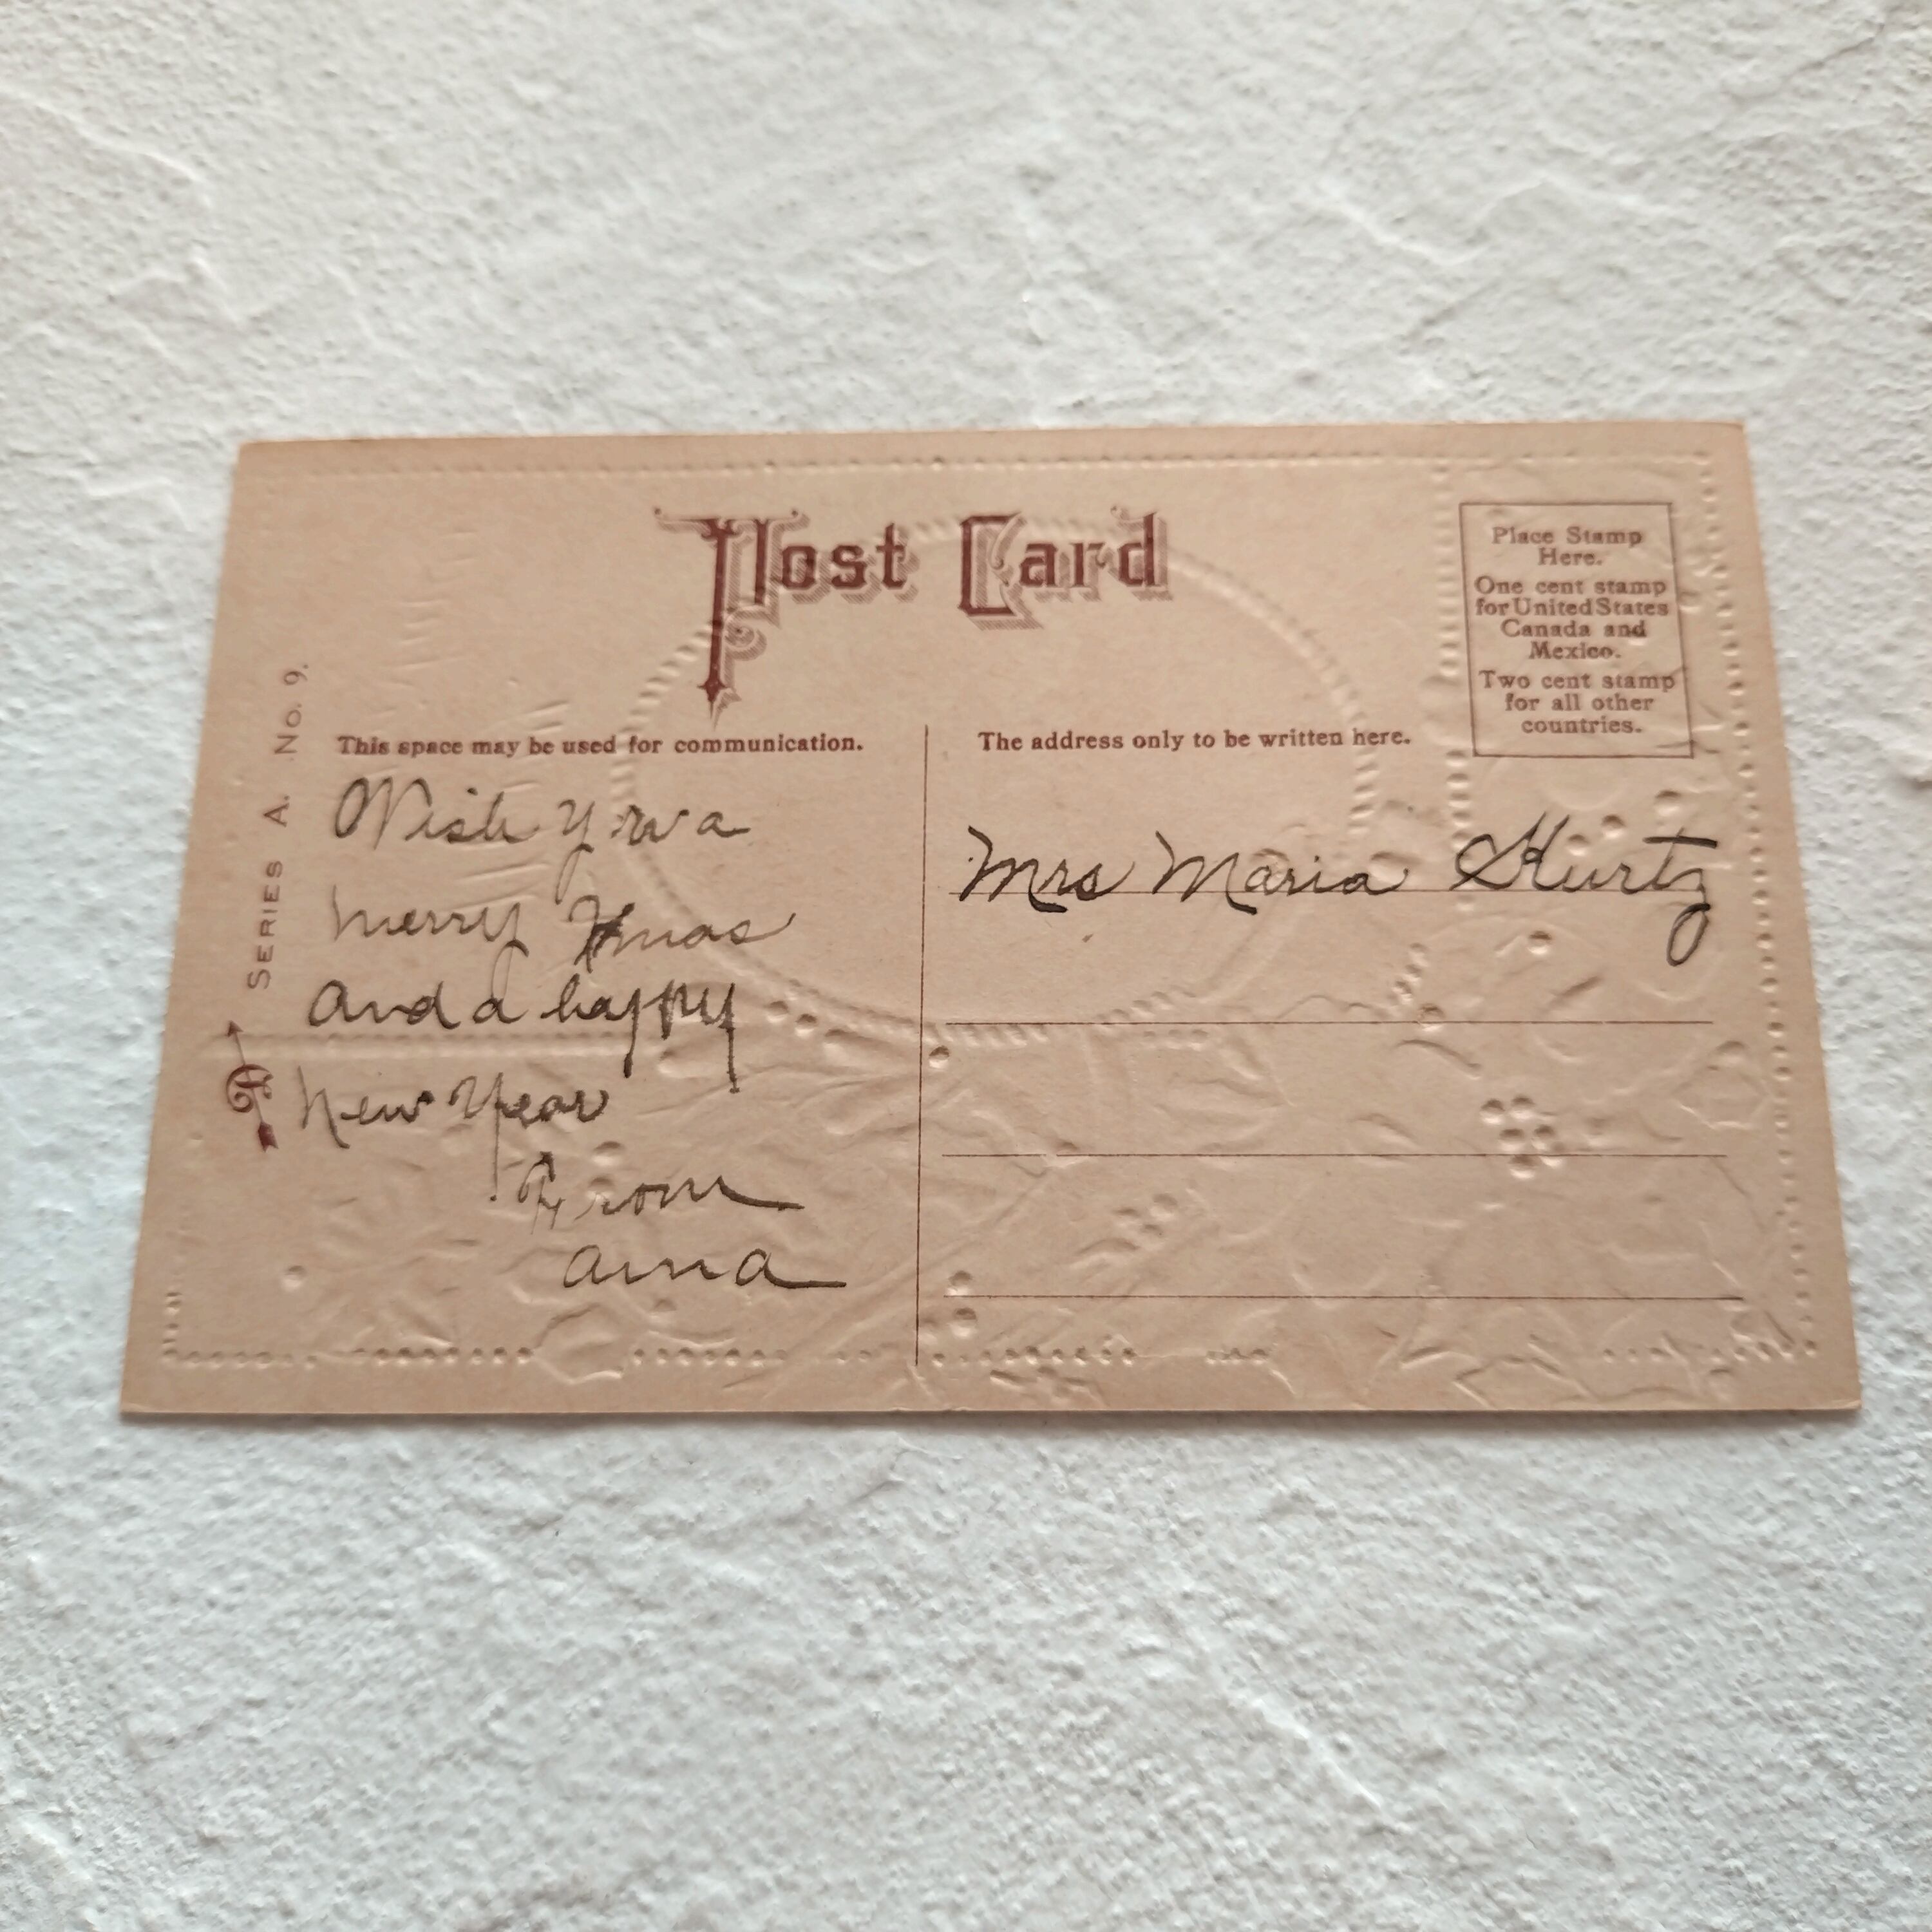 Post Card
Place Stamp
Here.
One cent stamp
for United States
Canada and
Mexico.
Two cent stamp
for all other
countries.
SERIES A. No. 9.
This space may be used for communication.
The address only to be written here.
Wish You a
merry Xmas
and a happy
new Year
From
anna
Mrs Maria Kurtz